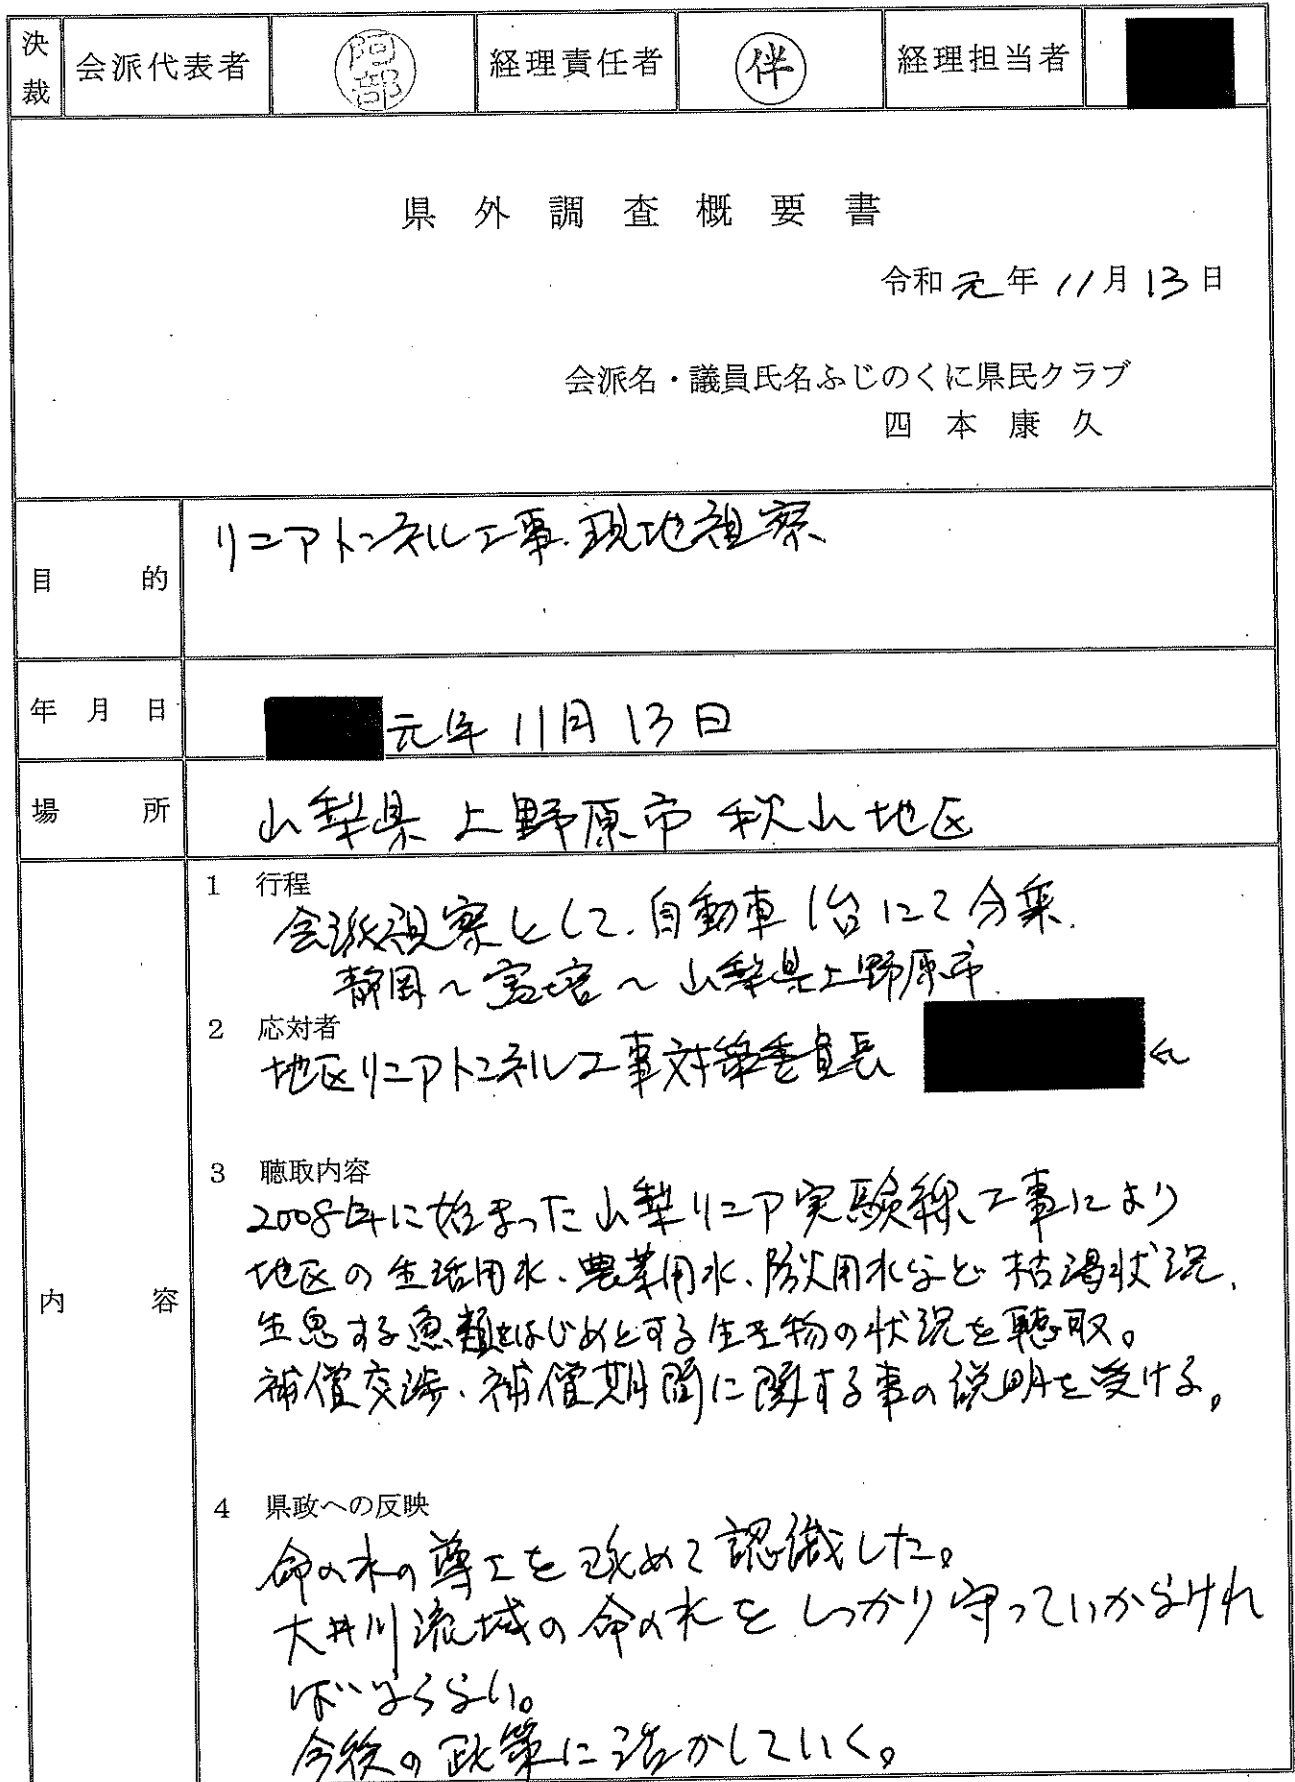 決裁 会派代表者 阿部 経理責任者 伴 経理担当者
県外調査概要書
令和元年11月13日
会派名・議員氏名ふじのくに県民クラブ
四本康久
目的 リニアトンネル工事.現地視察
年月日 元年11月13日
場所 山梨県上野原市秋山地区
内容
1 行程
会派視察として.自動車1台にて分乗.
静岡～富士宮～山梨県上野原市.
2 応対者
地区リニアトンネル工事対策委員長 氏
3 聴取内容
2008年に始まった山梨リニア実験線工事により
地区の生活用水、農業用水、防火用水など枯渇状況、
生息する魚類をはじめとする生き物の状況を聴取。
補償交渉、補償期間に関する事の説明を受ける。
4 県政への反映
命の水の尊さを改めて認識した。
大井川流域の命の水をしっかり守っていかなけれ
ばいならない。
今後の政策に活かしていく。